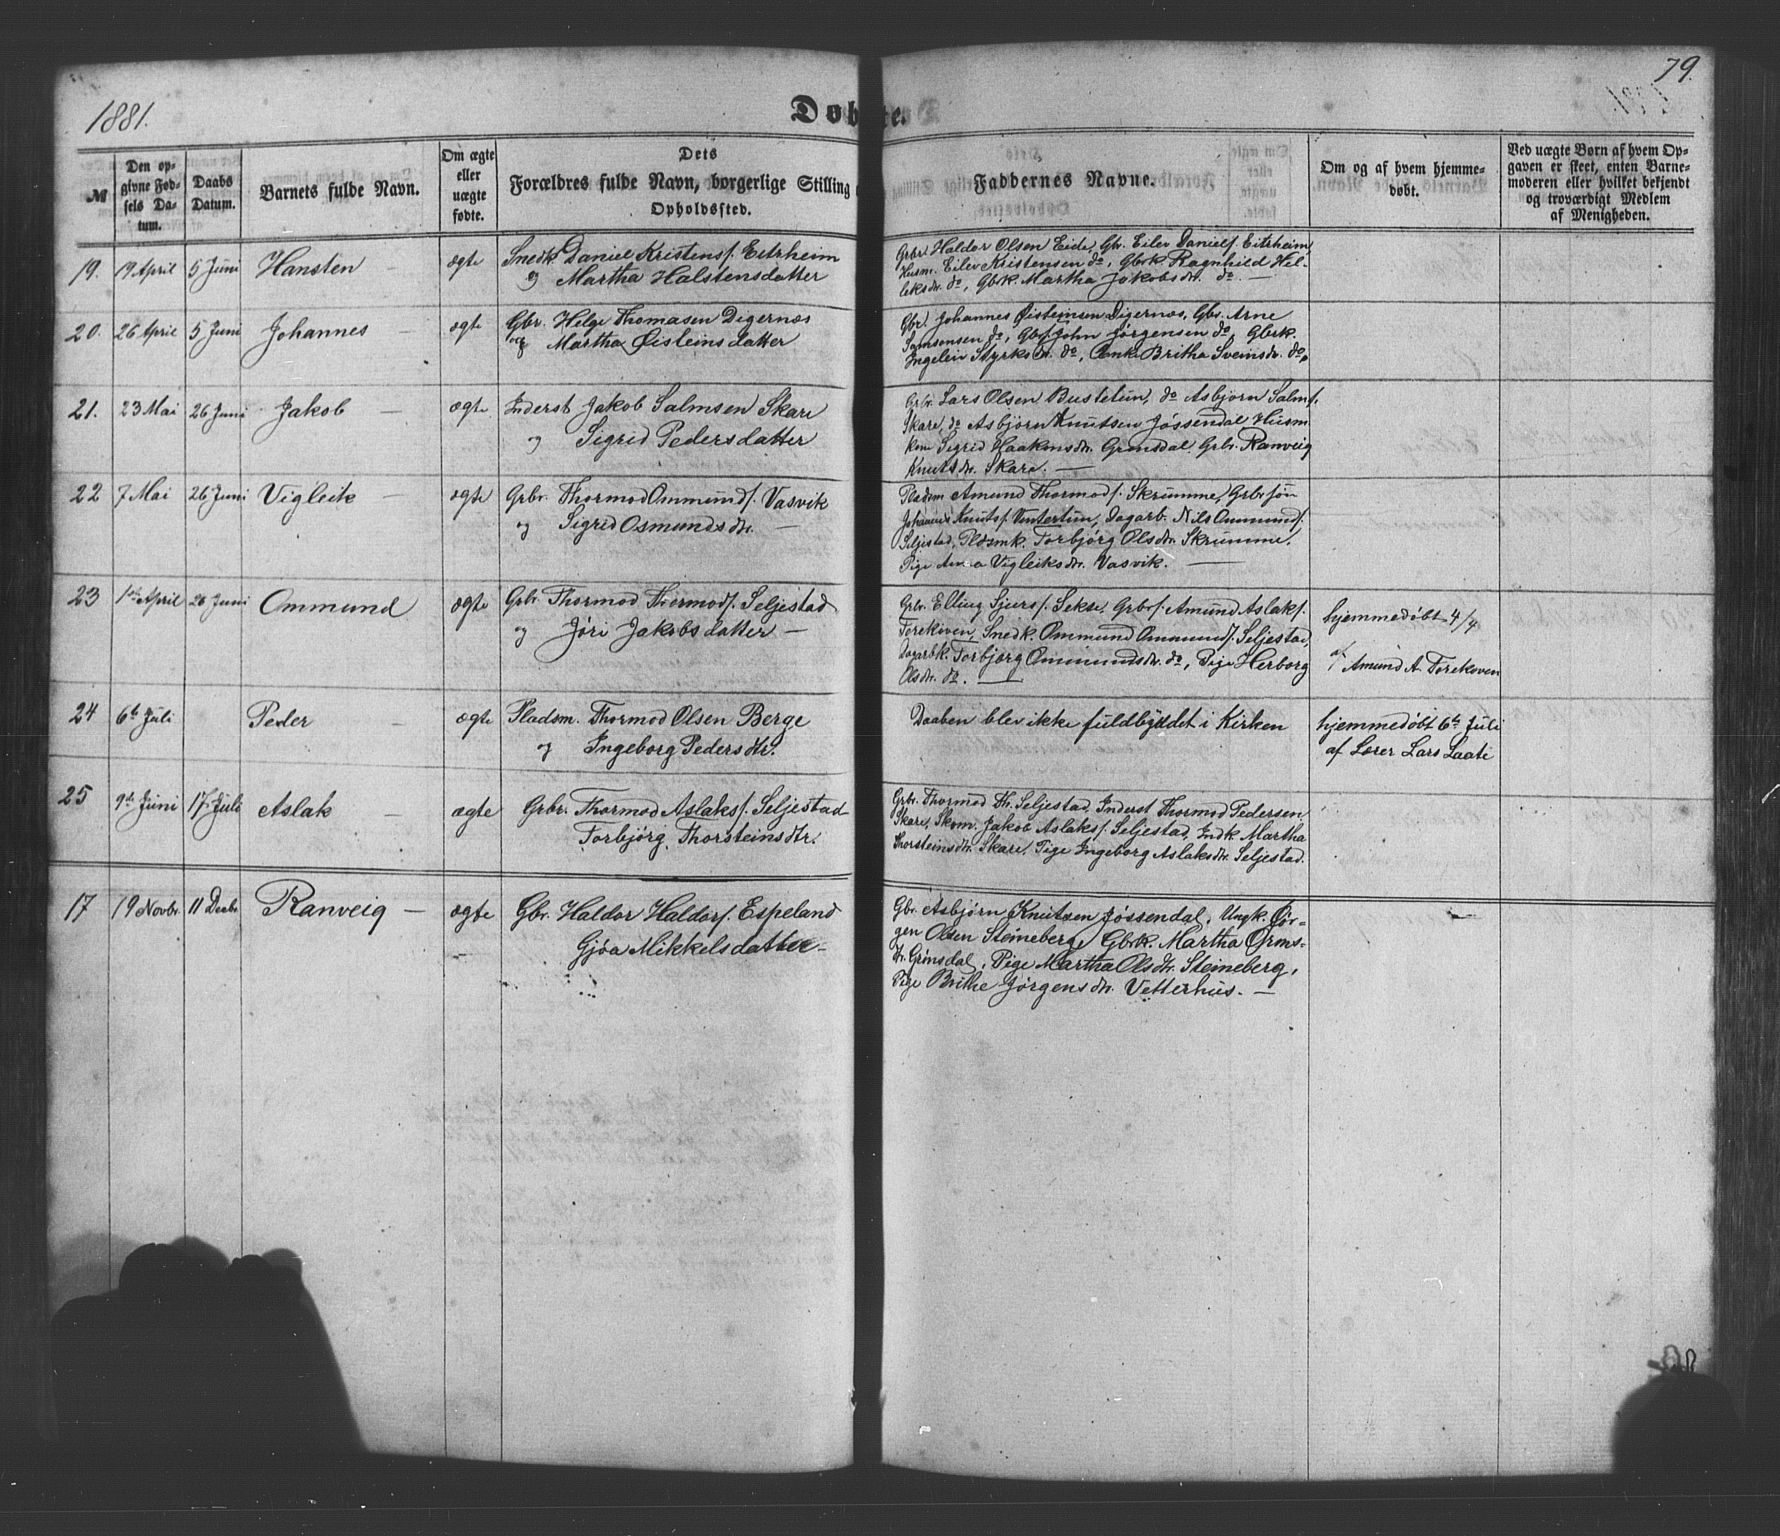 1881.
Døbte.
79.
№
Den op-
givne Fød-
sels Da-
tum.
Daabs
Datum.
Barnets fulde Navn.
Om ægte
eller
uægte
fødte.
Dets
Forældres fulde Navn, borgerlige Stilling
Opholdssted.
Faddernes Navne.
Om og af hvem hjemme-
døbt.
Ved uægte Børn af hvem Op-
gaven er skeet, enten Barne-
moderen eller hvilket bekjendt
og troværdigt Medlem
af Menigheden.
19. 19 April 5 Juni Hansten – ægte Snedk. Daniel Kristens/. Eitrheim
og Martha Halstensdatter
Grbr. Haldor Olsen Eide, Gbr. Eilev Daniels/. Eitrheim
Husm. Eilev Kristensen do, Gbrk Ragnhild Hel-
leksdtr. do, Gbrk. Martha Jakobsdtr. do. –
20. 26 April 5 Juni Johannes – ægte Gbr. Helge Thomasen Digernos
og Martha Øisteinsdatter
Gbr. Johannes Øisteinsen Digernos, Gbr. Arne
Samsonsen do, Gbr. John Jørgensen do, Gbrk.
Ingeleiv Styrksdtr. do, Enke Britha Sveinsdr. do.
21. 23 Mai 26 Juni Jakob – ægte Inderst Jakob Salmsen Skare
og Sigrid Pedersdatter
Grbr. Lars Olsen Bustetun, do Asbjørn Salms/.
Skare, do Asbjørn Knutsen Jøssendal, Husm
kone Sigrid Haakonsdtr. Grønsdal, Grbr. Ranveig
Knutsdtr. Skare. –
22 7 Mai 26 Juni Vigleik – ægte Grbr. Thormod Ommunds/. Vasvik
og Sigrid Osmundsdtr. –
Pladsm Amund Thormods/. Skrumme, Grbr søn
Johannes Knuts/. Vintertun, Dagarb. Nils Ommunds/.
Seljestad, Pldsmk. Torbjørg Olsdtr. Skrumme,
Pige Anna Vigleiksdtr. Vasvik. –
23 1ste April 26 Juni Ommund ægte Grbr. Thormod Thormods/. Seljestad
og Jøri Jakobsdatter –
Grbr. Elling Sjurs/. Sekse, Grbrs/. Amund Aslaks/.
Torekoven, Snedk. Ommund Ommunds/. Seljestad,
Dagarbk. Torbjørg Ommundsdtr. do, Pige Herborg
Olsdtr. do. –
hjemmedøbt 4/4
af Amund A. Torekoven
24 6te Juli Peder – ægte Pladsm. Thormod Olsen Berge
og Ingeborg Pedersdtr.
Daaben blev ikke fuldbyrdet i Kirken
hjemmedøbt 6te Juli
af Lærer Lars Laate
25 9de Juni 17 Juli Aslak – ægte Grbr. Thormod Aslaks/. Seljestad
Torbjørg Thorsteinsdtr.
Grbr. Thormod Th. Seljestad, Inderst Thormod Pedersen
Skare, Skom. Jakob Aslaks/. Seljestad, Indk. Martha
Thorsteinsdtr. Skare, Pige Ingeborg Aslaksdtr. Seljestad.
17 19 Novbr. 11 Decbr. Ranveig – ægte Gbr. Haldor Haldors/. Espeland
Gjøa Mikkelsdatter –
Gbr. Asbjørn Knutsen Jøssendal, Ungk. Jør-
gen Olsen Steineberge, Gbrk. Martha Orms-
dtr. Grønsdal, Pige Martha Olsdtr. Steineberg,
Pige Brithe Jørgensdtr. Vetterhus. –